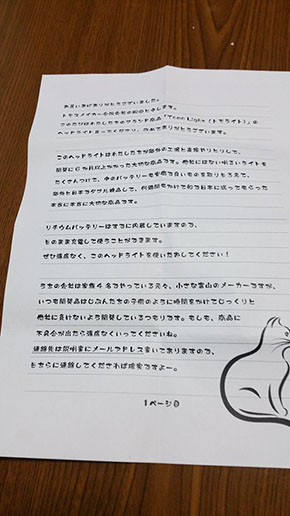 お買い上げありがとうございました。
トモスメイカー合同会社の和のともします。
このたびはわたしたちのブランド商品「Tomo Light(トモライト)」の
ヘッドライト買ってくださり、改めてありがとうございます。
このヘッドライトはわたしたちが海外の工場と直接やりとりして、
開発に6か月以上かかった大切な商品です。他社にはない明るいライトを
たくさんつけて、中のバッテリーも寿命の良いものを取りそろえて、
海外と日本でダブル検品して、何週間もかけて船で日本に送ってもらった
本当に本当に大切な商品です。
リチウムバッテリーはすでに内蔵していますので、
そのまま充電して使うことができます。
ぜひ遠慮なく、このヘッドライトを使いたおしてください!
うちの会社は家族4名でやっている元々、小さな富山のメーカーですが、
いつも開発品はじぶんたちの子供のように時間をかけてじっくりと
他社に負けないよう開発しているつもりです。もしも、商品に
不具合が出たら遠慮なくいってくださいね。
連絡先は説明書にメールアドレス書いてありますので、
そちらに連絡してくだされば確実ですよー。
1ページ